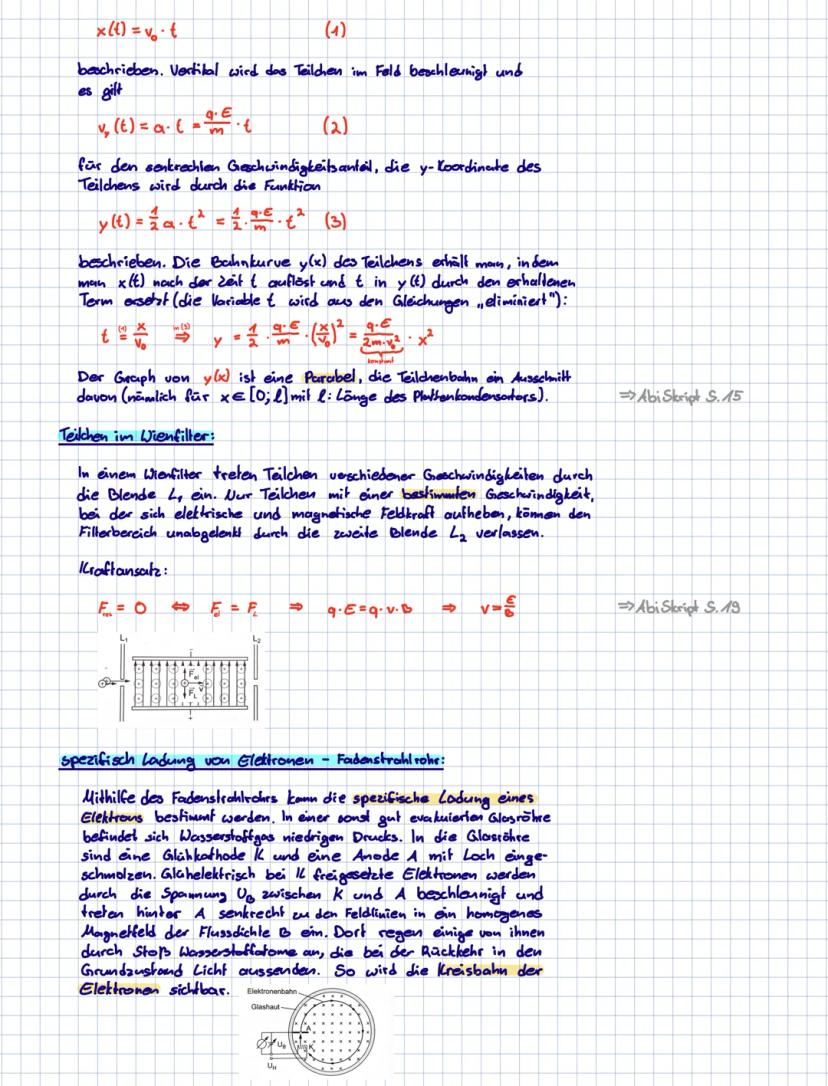 x(t) = v₀ · t (1)
beschrieben. Vertikal wird das Teilchen im Feld beschleunigt und
es gilt
v_y(t) = a · t = (q·E)/m · t (2)
für den senkrechten Geschwindigkeitsanteil, die y-Koordinate des
Teilchens wird durch die Funktion
y(t) = 1/2 a · t² = 1/2 · (q·E)/m · t² (3)
beschrieben. Die Bahnkurve y(x) des Teilchens erhält man, indem
man x(t) nach der Zeit t auflöst und t in y(t) durch den erhaltenen
Term ersetzt (die Variable t wird aus den Gleichungen „eliminiert"):
t (1)= x/v₀ in (3)⇒ y = 1/2 · (q·E)/m · (x/v₀)² = (q·E)/(2m·v₀²) · x²
konstant
Der Graph von y(x) ist eine Parabel, die Teilchenbahn ein Ausschnitt
davon (nämlich für x ∈ [0; l] mit l: Länge des Plattenkondensators). ⇒ Abi Skript S. 15
Teilchen im Wienfilter:
In einem Wienfilter treten Teilchen verschiedener Geschwindigkeiten durch
die Blende L₁ ein. Nur Teilchen mit einer bestimmten Geschwindigkeit,
bei der sich elektrische und magnetische Feldkraft aufheben, können den
Filterbereich unabgelenkt durch die zweite Blende L₂ verlassen.
Kraftansatz:
F_res = 0 ⇔ F_el = F_L ⇒ q·E = q·v·B ⇒ v = E/B ⇒ Abi Skript S. 19
L₁ L₂
F_el
v
F_L
spezifisch Ladung von Elektronen – Fadenstrahlrohr:
Mithilfe des Fadenstrahlrohrs kann die spezifische Ladung eines
Elektrons bestimmt werden. In einer sonst gut evakuierten Glasröhre
befindet sich Wasserstoffgas niedrigen Drucks. In die Glasröhre
sind eine Glühkathode K und eine Anode A mit Loch einge-
schmolzen. Glühelektrisch bei K freigesetzte Elektronen werden
durch die Spannung U_B zwischen K und A beschleunigt und
treten hinter A senkrecht zu den Feldlinien in ein homogenes
Magnetfeld der Flussdichte B ein. Dort regen einige von ihnen
durch Stoß Wasserstoffatome an, die bei der Rückkehr in den
Grundzustand Licht aussenden. So wird die Kreisbahn der
Elektronen sichtbar.
Elektronenbahn
Glashaut
A
U_B K
U_H